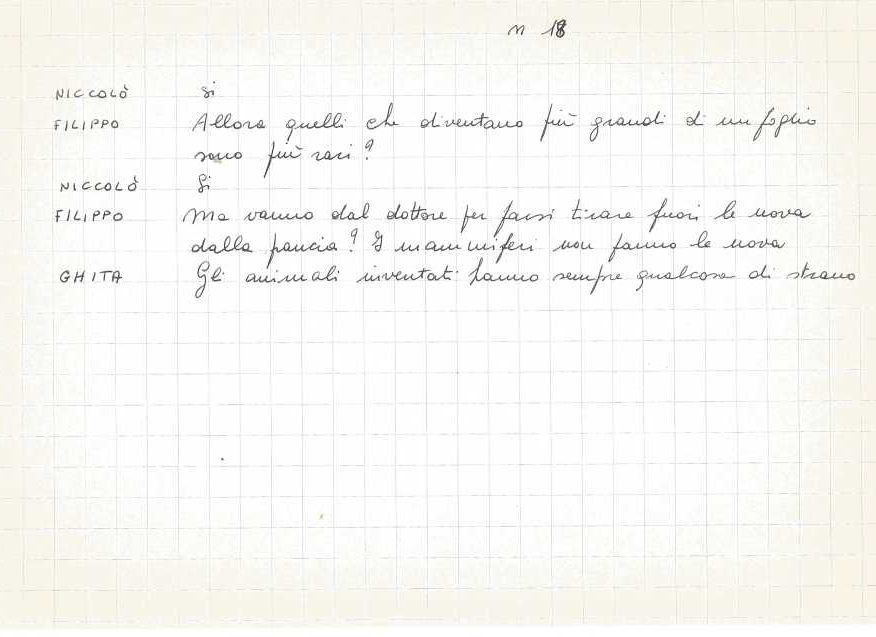 n 18
NICCOLÒ Si
FILIPPO Allora quelli che diventano più grandi di un foglio
sono più rari?
NICCOLÒ Si
FILIPPO Ma vanno dal dottore per farsi tirare fuori le uova
dalla pancia? I mammiferi non fanno le uova
GHITA Gli animali inventati hanno sempre qualcosa di strano